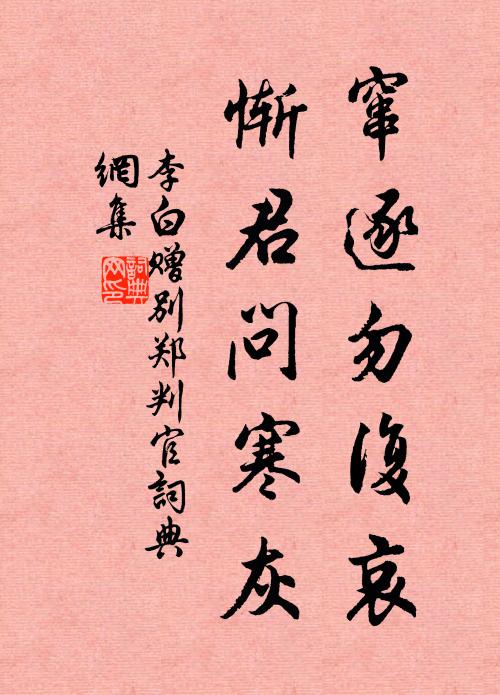 窜逐勿復哀
惭君问寒灰
李白赠别郑判官詞典
網集
詞典
网印